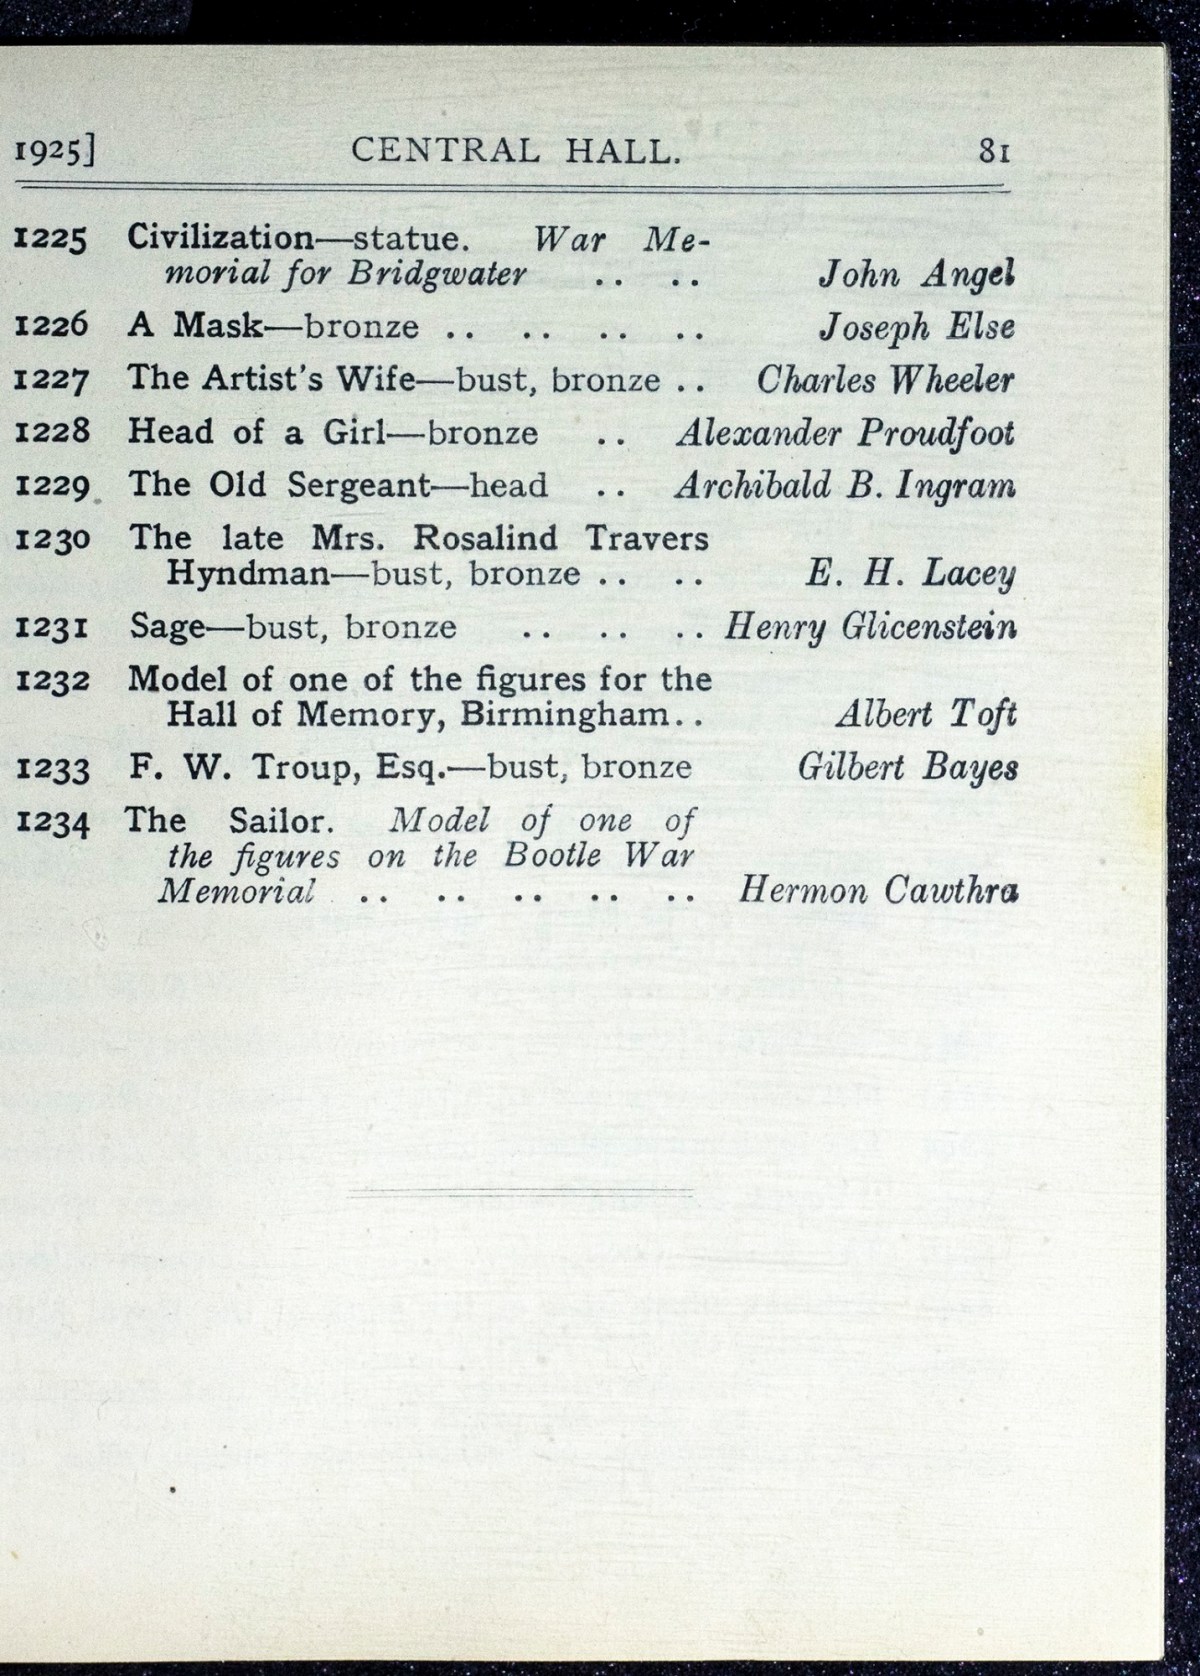 1925] CENTRAL HALL. 81
1225 Civilization—statue. War Me-
morial for Bridgwater .. .. John Angel
1226 A Mask—bronze .. .. .. .. Joseph Else
1227 The Artist's Wife—bust, bronze .. Charles Wheeler
1228 Head of a Girl—bronze .. Alexander Proudfoot
1229 The Old Sergeant—head .. Archibald B. Ingram
1230 The late Mrs. Rosalind Travers
Hyndman—bust, bronze .. .. E. H. Lacey
1231 Sage—bust, bronze .. .. .. Henry Glicenstein
1232 Model of one of the figures for the
Hall of Memory, Birmingham.. Albert Toft
1233 F. W. Troup, Esq.—bust, bronze Gilbert Bayes
1234 The Sailor. Model of one of
the figures on the Bootle War
Memorial .. .. .. .. .. Hermon Cawthra